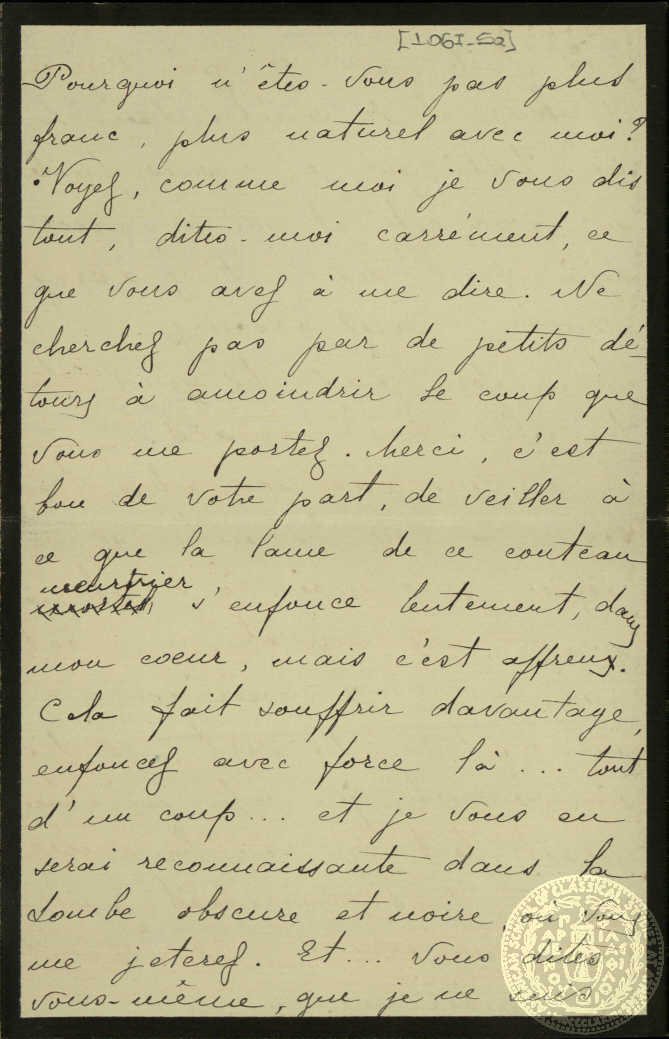 [106I-52]
Pourquoi n'êtes-vous pas plus
franc, plus naturel avec moi?
Voyez, comme moi je vous dis
tout, dites-moi carrément, ce
que vous avez à me dire. Ne
cherchez pas par de petits dé-
tours à amoindrir le coup que
vous me portez. Merci, c'est
bon de votre part, de veiller à
ce que la lame de ce couteau
meurtrier
s'enfonce lentement, dans
mon coeur, mais c'est affreux.
Cela fait souffrir davantage,
enfoncez avec force là... tout
d'un coup... et je vous en
serai reconnaissante dans la
tombe obscure et noire, où vous
me jeterez. Et... vous dites
vous-même, que je ne suis